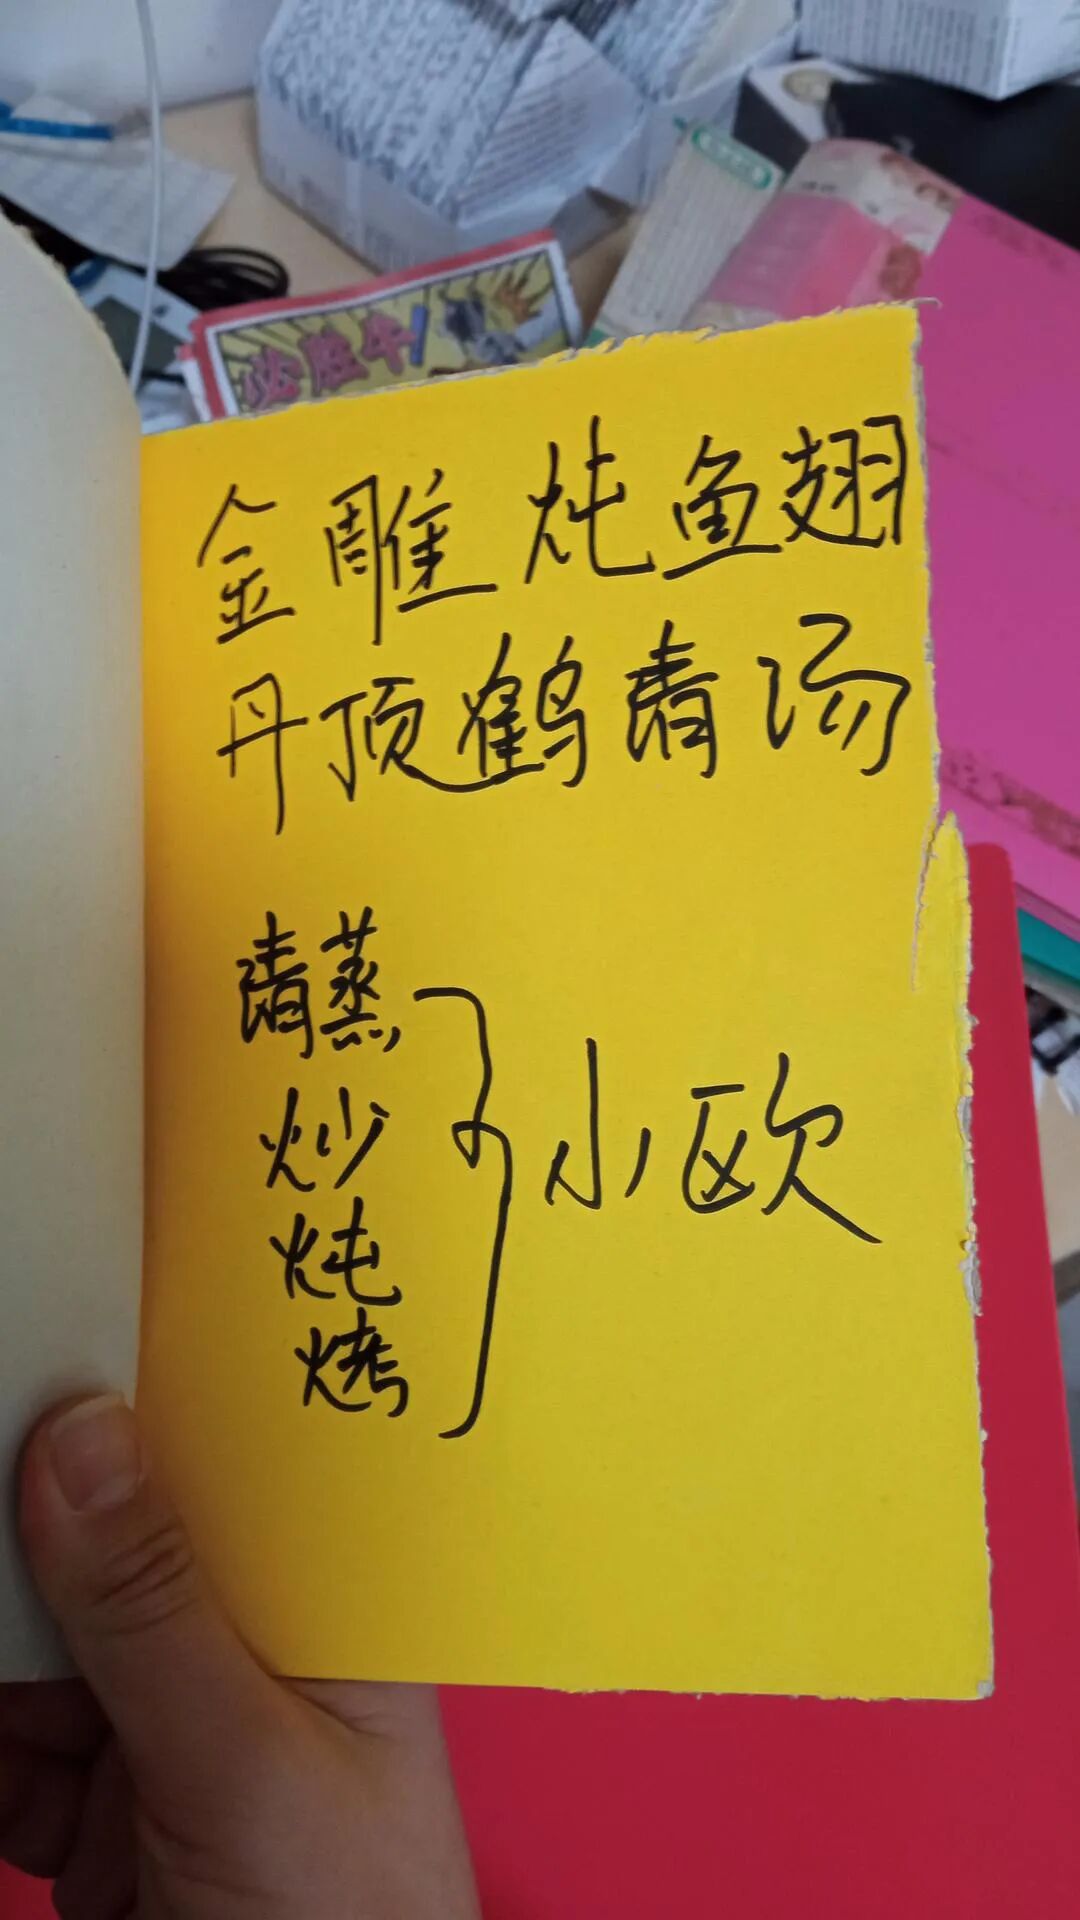 必胜牛!
金雕炖鱼翅
丹顶鹤清汤
清蒸
炒
炖
烤
小欧